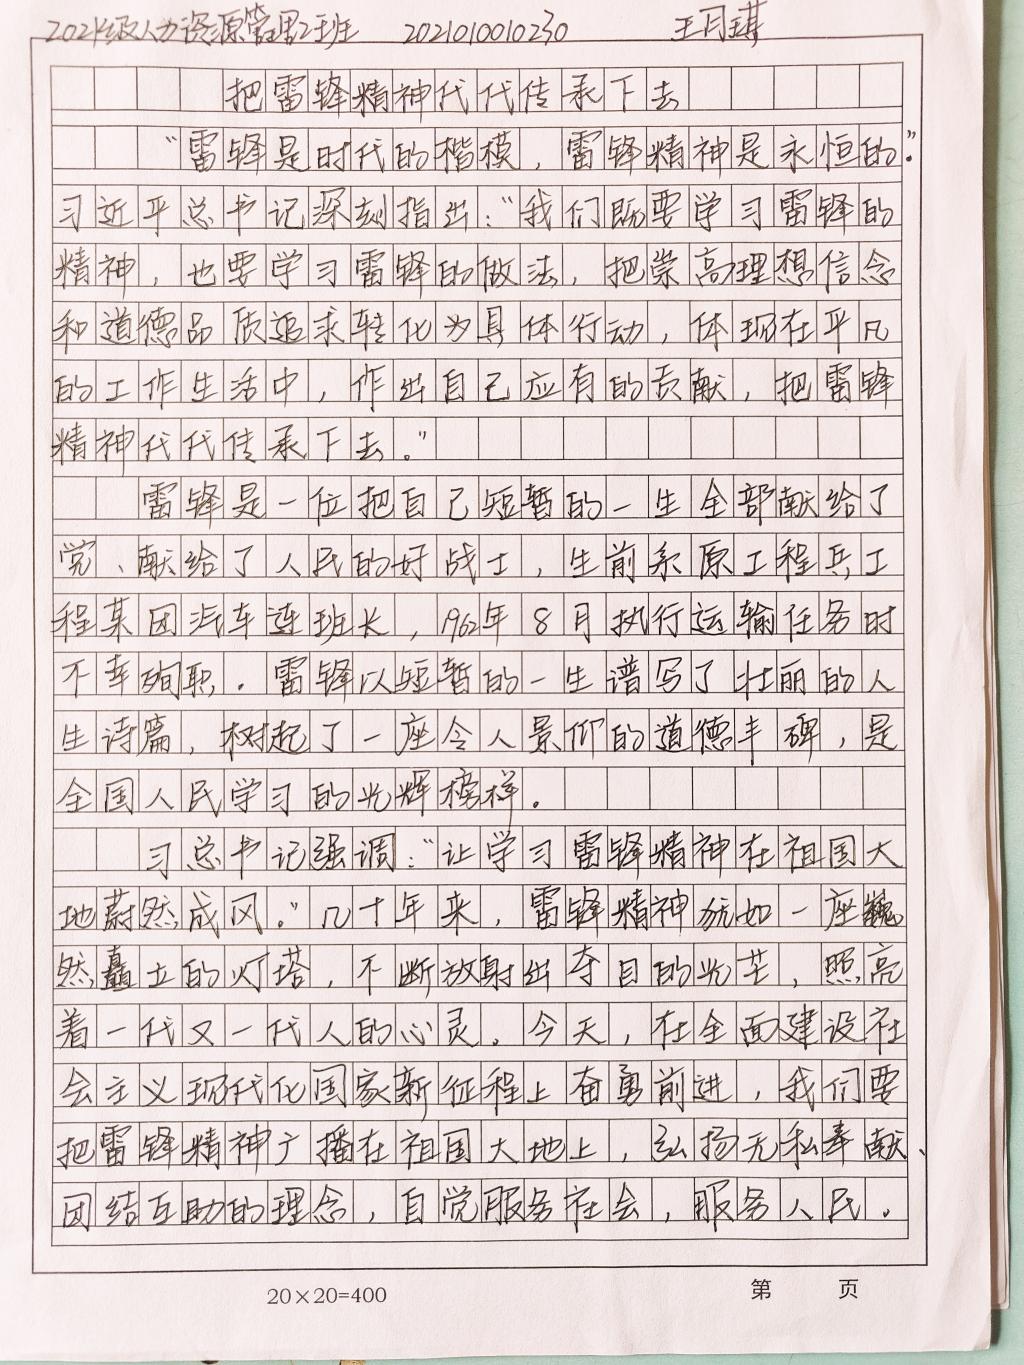 2021级人力资源管理2班 2021010010230 王月琪
把雷锋精神代代传承下去
“雷锋是时代的楷模，雷锋精神是永恒的。”
习近平总书记深刻指出：“我们既要学习雷锋的
精神，也要学习雷锋的做法，把崇高理想信念
和道德品质追求转化为具体行动，体现在平凡
的工作生活中，作出自己应有的贡献，把雷锋
精神代代传承下去。”
雷锋是一位把自己短暂的一生全部献给了
党、献给了人民的好战士，生前系原工程兵工
程某团汽车连班长，1962年8月执行运输任务时
不幸殉职。雷锋以短暂的一生谱写了壮丽的人
生诗篇，树起了一座令人景仰的道德丰碑，是
全国人民学习的光辉榜样。
习总书记强调：“让学习雷锋精神在祖国大
地蔚然成风。”几十年来，雷锋精神犹如一座巍
然矗立的灯塔，不断放射出夺目的光芒，照亮
着一代又一代人的心灵。今天，在全面建设社
会主义现代化国家新征程上奋勇前进，我们要
把雷锋精神广播在祖国大地上，弘扬无私奉献、
团结互助的理念，自觉服务社会，服务人民。
20×20=400 第 页